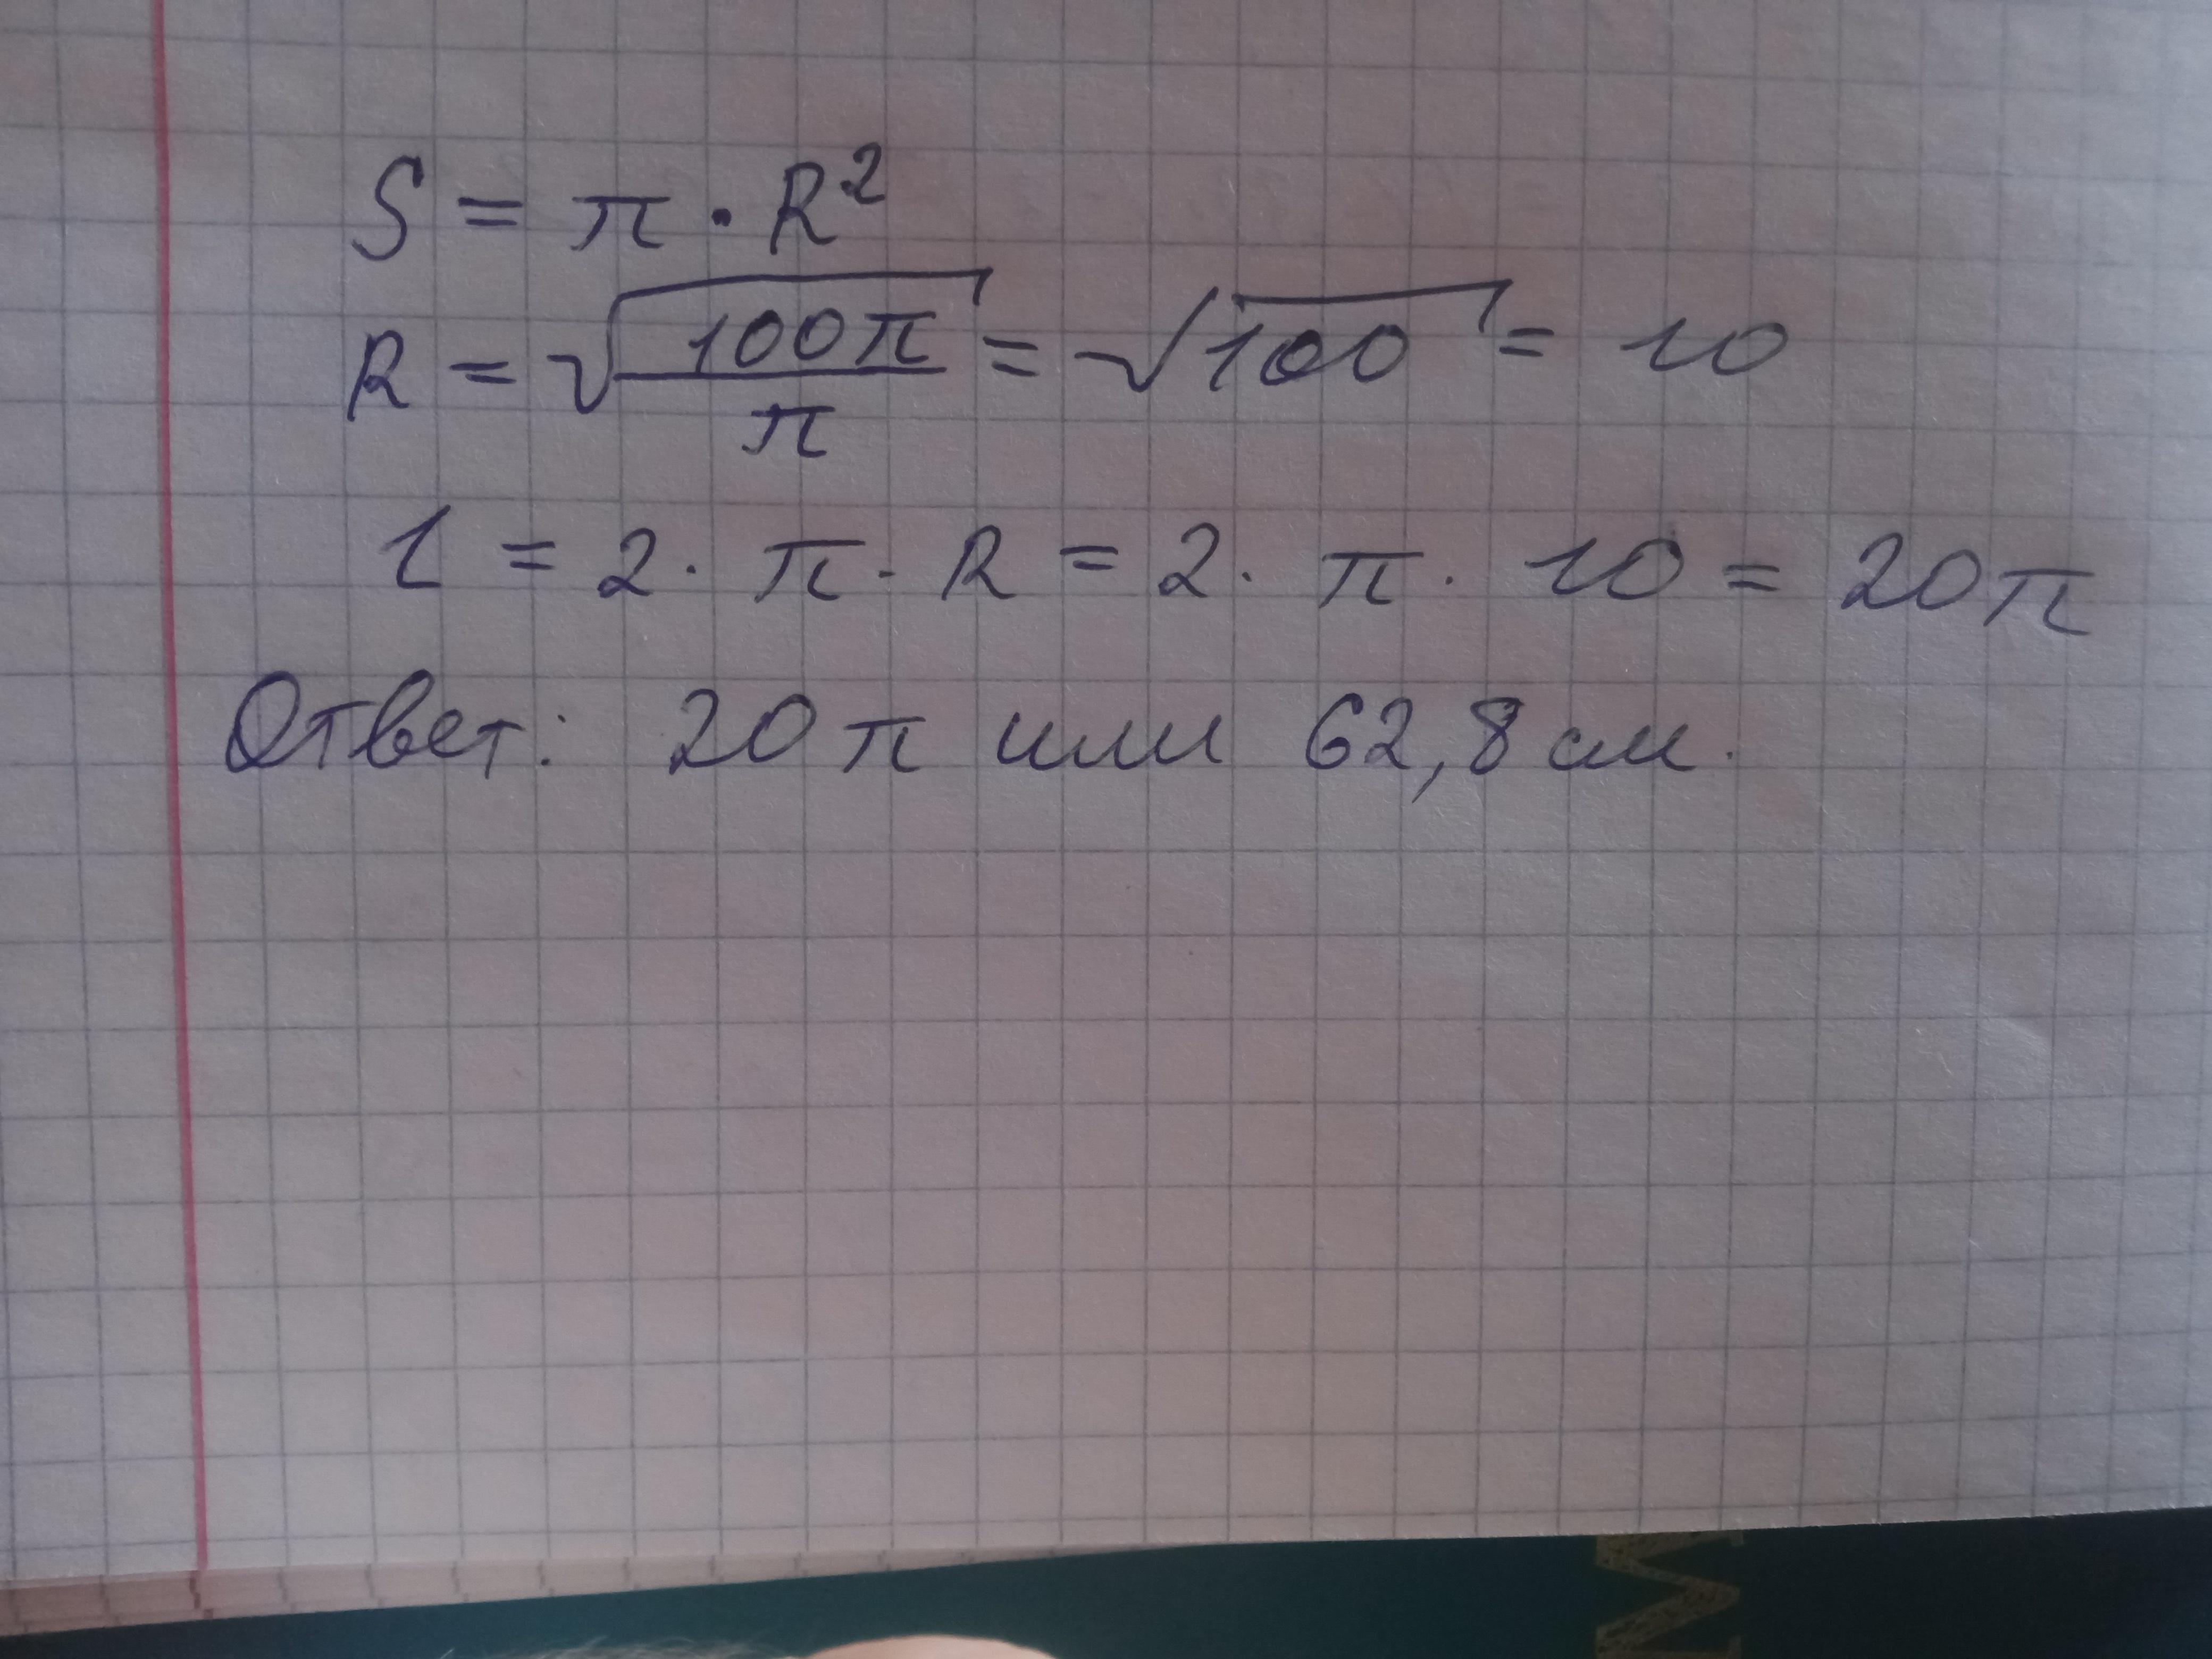 S = π · R²
R = √(100π/π) = √100 = 10
l = 2 · π · R = 2 · π · 10 = 20π
Ответ: 20π или 62,8 см.